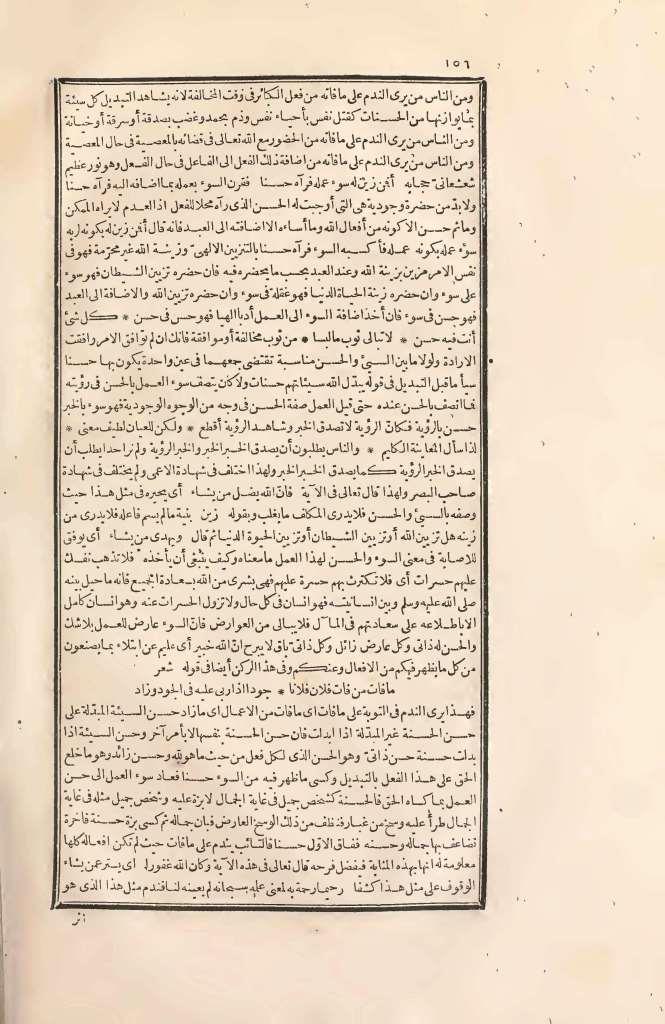 ١٥٦
ومن الناس من يرى الندم على مافاته من فعل الكبائر فى وقت المخالفة لانه يشاهد التبديل كل سيئة
بما يوازنها من الحسنات كقتل نفس بأحياء نفس وذم بحمد وغضب بصدقة أو سرقة أو خيانة
ومن الناس من يرى الندم على مافاته من الحضور مع الله تعالى فى قضائه بالمعصية فى حال المعصية
ومن الناس من يرى الندم على مافاته من اضافة ذلك الفعل الى الفاعل فى حال الفعل وهو نور عظيم
شعشعانى حجابيه أفمن زين له سوء عمله فرآه حسنا فقرن السوء بعمله بما اضافه اليه فرآه حسنا
ولابد من حضرة وجودية هى التى أوجبت له الحسن الذى رآه محلا للفعل اذ العدم لا يراه الممكن
وماثم حسن الا كونه من أفعال الله وما أساءه الا اضافته الى العبد فانه قال أفمن زين له بكونه لربه
سوء عمله بكونه عمله فأكسبه السوء فرآه حسنا بالتزيين الالهى وزينة الله غير محرمة فهو فى
نفس الامر مزين بزينة الله وعند العبد بحسب ما يحضره فيه فان حضره تزيين الشيطان فهو سوء
على سوء وان حضره زينة الحياة الدنيا فهو غفلة فى سوء وان حضره تزيين الله والاضافة الى العبد
فهو حسن فى سوء فان أخذ اضافة السوء الى العمل أدبا الهيا فهو حسن فى حسن * كل شئ
أنت فيه حسن * لا تبالى ثوب مالبسا * من ثوب مخالفة أو موافقة فانك ان لم توافق الامر وافقت
الارادة ولولا ما بين السيئ والحسن مناسبة تقتضى جمعهما فى عين واحدة يكون بها حسنا
سيأ ما قبل التبديل فى قوله يبدل الله سيئاتهم حسنات ولا كان يتصف سوء العمل بالحسن فى رؤيته
فما اتصف بالحسن عنده حتى قبل العمل صفة الحسن فى وجه من الوجوه الوجودية فهو سوء بالخبر
حسن بالرؤية فكانت الرؤية لا تصدق الخبر وشاهد الرؤية أقطع * ولكن للعيان لطيف معنى *
لذا سأل المعاينة الكليم * والناس يطلبون أن يصدق الخبر الخبر والخبر الرؤية ولم نر احدا يطلب أن
يصدق الخبر الرؤية كما يصدق الخبر الخبر ولهذا اختلف فى شهادة الاعمى ولم يختلف فى شهادة
صاحب البصر ولهذا قال تعالى فى الآية فان الله يضل من يشاء أى يحيره فى مثل هذا حيث
وصفه بالسيئ والحسن فلا يدرى المكلف ما يغلب وبقوله زين بنية مالم يسم فاعله فلا يدرى من
زينه هل تزيين الله أو تزيين الشيطان أو تزيين الحيوة الدنيا ثم قال ويهدى من يشاء أى يوفق
للاصابة فى معنى السوء والحسن لهذا العمل ما معناه وكيف ينبغى أن يأخذه فلا تذهب نفسك
عليهم حسرات أى فلا تكترث بهم حسرة عليهم فهى بشرى من الله بسعادة الجميع فانه ما حيل بينه
صلى الله عليه وسلم وبين انسانيته فهو انسان فى كل حال ولا تزول الحسرات عنه وهو انسان كامل
الا باطلاعه على سعادتهم فى المآل فلا يبالى من العوارض فان السوء عارض للعمل بلاشك
والحسن له ذاتى وكل عارض زائل وكل ذاتى باق لا يبرح ان الله خبير أى عليم عن ابتلاء بما يصنعون
من كل ما يظهر فيكم من الافعال وعنكم وفى هذا الركن أيضا فى قوله شعر
مافات من فات فلان فلانا * جودا اذا ربى عليه فى الجود وزاد
فهذا يرى الندم فى التوبة على مافات اى مافات من الاعمال اى مازاد حسن السيئة المبدلة على
حسن الحسنة غير المبدلة اذا ابدلت فان حسن الحسنة بنفسها لا بأمر آخر وحسن السيئة اذا
بدلت حسنة حسن ذاتى وهو الحسن الذى لكل فعل من حيث ما هو لله وحسن زائد وهو ما خلع
الحق على هذا الفعل بالتبديل وكسى ما ظهر فيه من السوء حسنا فعاد سوء العمل الى حسن
العمل بما كساه الحق فالحسنة كشخص جميل فى غاية الجمال لا بزة عليه وشخص جميل مثله فى غاية
الجمال طرأ عليه وسخ من غبار فنظف من ذلك الوسخ العارض فبان جماله ثم كسى بزة حسنة فاخرة
تضاعف بها جماله وحسنه ففاق الاول حسنا فالتائب يندم على مافات حيث لم تكن افعاله كلها
معلومة له انها بهذه المثابة فيفضل فرحه قال تعالى فى هذه الآية وكان الله غفورا أى يستر عمن يشاء
الوقوف على مثل هذا كشفا رحيما رحمة به لمعنى علمه سبحانه لم يعينه لنا فندم مثل هذا الذى هو